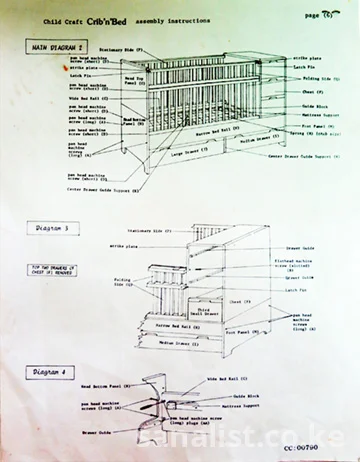 Child Craft Crib'n'Bed assembly instructions
page (6)
MAIN DIAGRAM 2
Stationary Side (F)
pan head machine
screw (short) (D)
strike plate
Latch Pin
pan head machine
screw (short) (D)
Head Top
Panel
pan head machine
screw (short) (D)
Wide Bed Rail (C)
pan head machine
screw (short) (D)
pan head machine
screw (long) (A)
Head bottom
Panel (H)
pan head machine
screw (short) (D)
pan head
machine
screw (long) (A)
pan head machine
screw (short) (D)
Center Drawer Guide Support (K)
strike plate
Latch Pin
Folding Side (G)
Chest (F)
Guide Block
Mattress Support
Foot Panel (M)
Spring (N) (crib size)
Narrow Bed Rail (B)
Medium Drawer
Large Drawer (J)
Center Drawer Guide Support (K)
Diagram 3
Stationary Side (F)
strike plate
TOP TWO DRAWERS OF
CHEST (F) REMOVED
Folding
Side (G)
Drawer Guide
Flathead machine
screw (slotted)
Drawer Guide
Latch Pin
Third
Small Drawer
Chest (F)
Narrow Bed Rail (B)
Medium Drawer (E)
Foot Panel (M)
pan head
machine
screw
(long) (A)
Diagram 4
Head Bottom Panel (H)
Wide Bed Rail (C)
pan head machine
screws (long) (A)
Guide Block
Mattress Support
pan head machine screw
(long) plugs
Drawer Guide
sanalist.co.ke
CC:00790